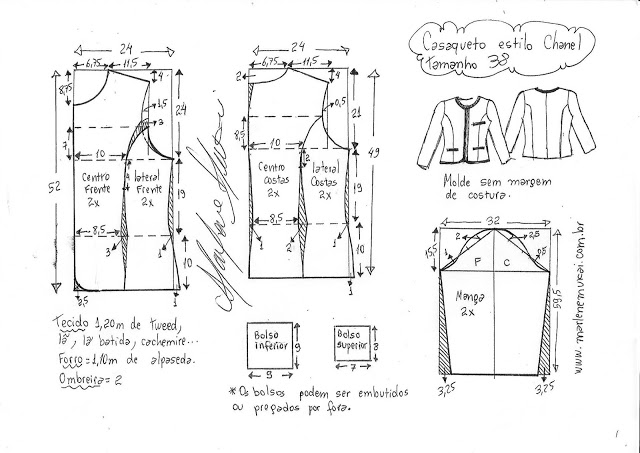 Casaqueto estilo Chanel
tamanho 38
24
6,75
11,5
4
8,75
1,5
3
24
7
10
52
Centro
Frente
2x
lateral
Frente
2x
4
19
8,5
3
1
10
3,5
1
24
6,75
11,5
2
4
0,5
21
8,5
10
2
49
Centro
Costas
2x
lateral
Costas
2x
19
8,5
1
1
10
1
Molde sem margem
de costura.
32
15,5
2
2,5
1
0,5
F
C
Manga
2x
59,5
3,25
3,25
www.marlenemukai.com.br
Tecido 1,20m de tweed,
lã, lã batida, cachemire...
Forro = 1,10m de alpaseda.
Ombreira = 2
Bolso
inferior
9
9
Bolso
superior
8
7
* Os bolsos podem ser embutidos
ou pregados por fora.
1